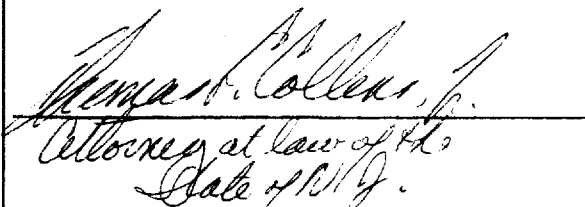 Thomas P. Collins, Jr.
Attorney at law of the
State of N.J.